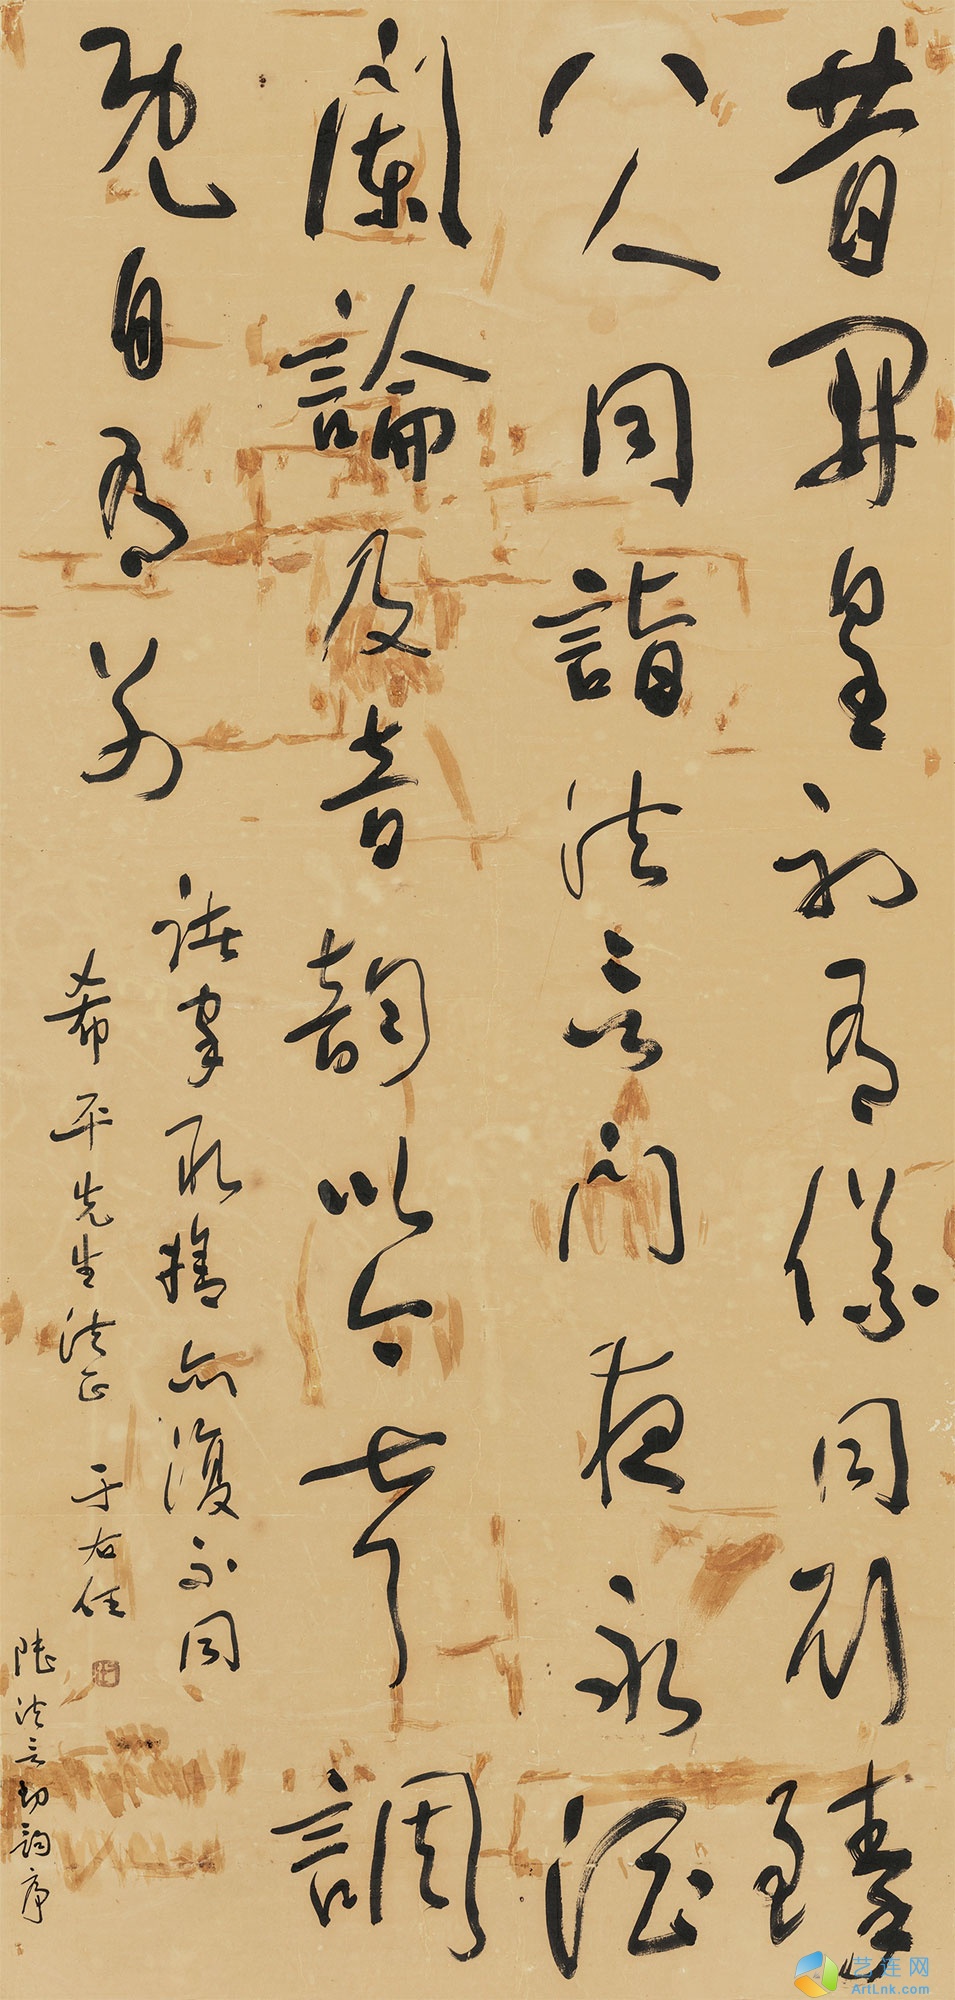 昔開皇初有儀同劉臻
八人同詣法言門夜永酒
闌論及音韻以今聲調
既自有別
諸家取捨亦復不同
希平先生法正 于右任
陸法言切韻序
艺连网
ArtLnk.com